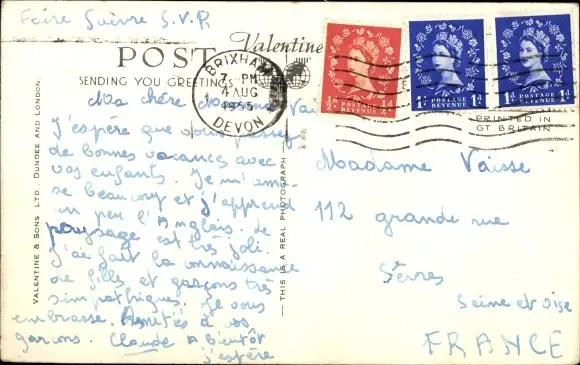 Faire Suivre S.V.P
POST
Valentine
SENDING YOU GREETINGS
BRIXHAM
PM
4 AUG
1955
DEVON
½D POSTAGE REVENUE ½D
1D POSTAGE REVENUE 1D
1D POSTAGE REVENUE 1D
PRINTED IN
GT BRITAIN
VALENTINE & SONS LTD., DUNDEE AND LONDON.
THIS IS A REAL PHOTOGRAPH
Ma chère Madame Vaisse
J'espère que vous passez
de bonnes vacances avec
vos enfants. Je m'amu
se beaucoup et j'apprend
un peu l'Anglais. Le
paysage est très joli.
J'ai fait la connaissance
de filles et garçons très
simpathiques. Je vous
embrasse. Amitiés à vos
garçons. Claude A Bientôt
j'espère
Madame Vaisse
112 grande rue
Sèvres
Seine et Oise
FRANCE